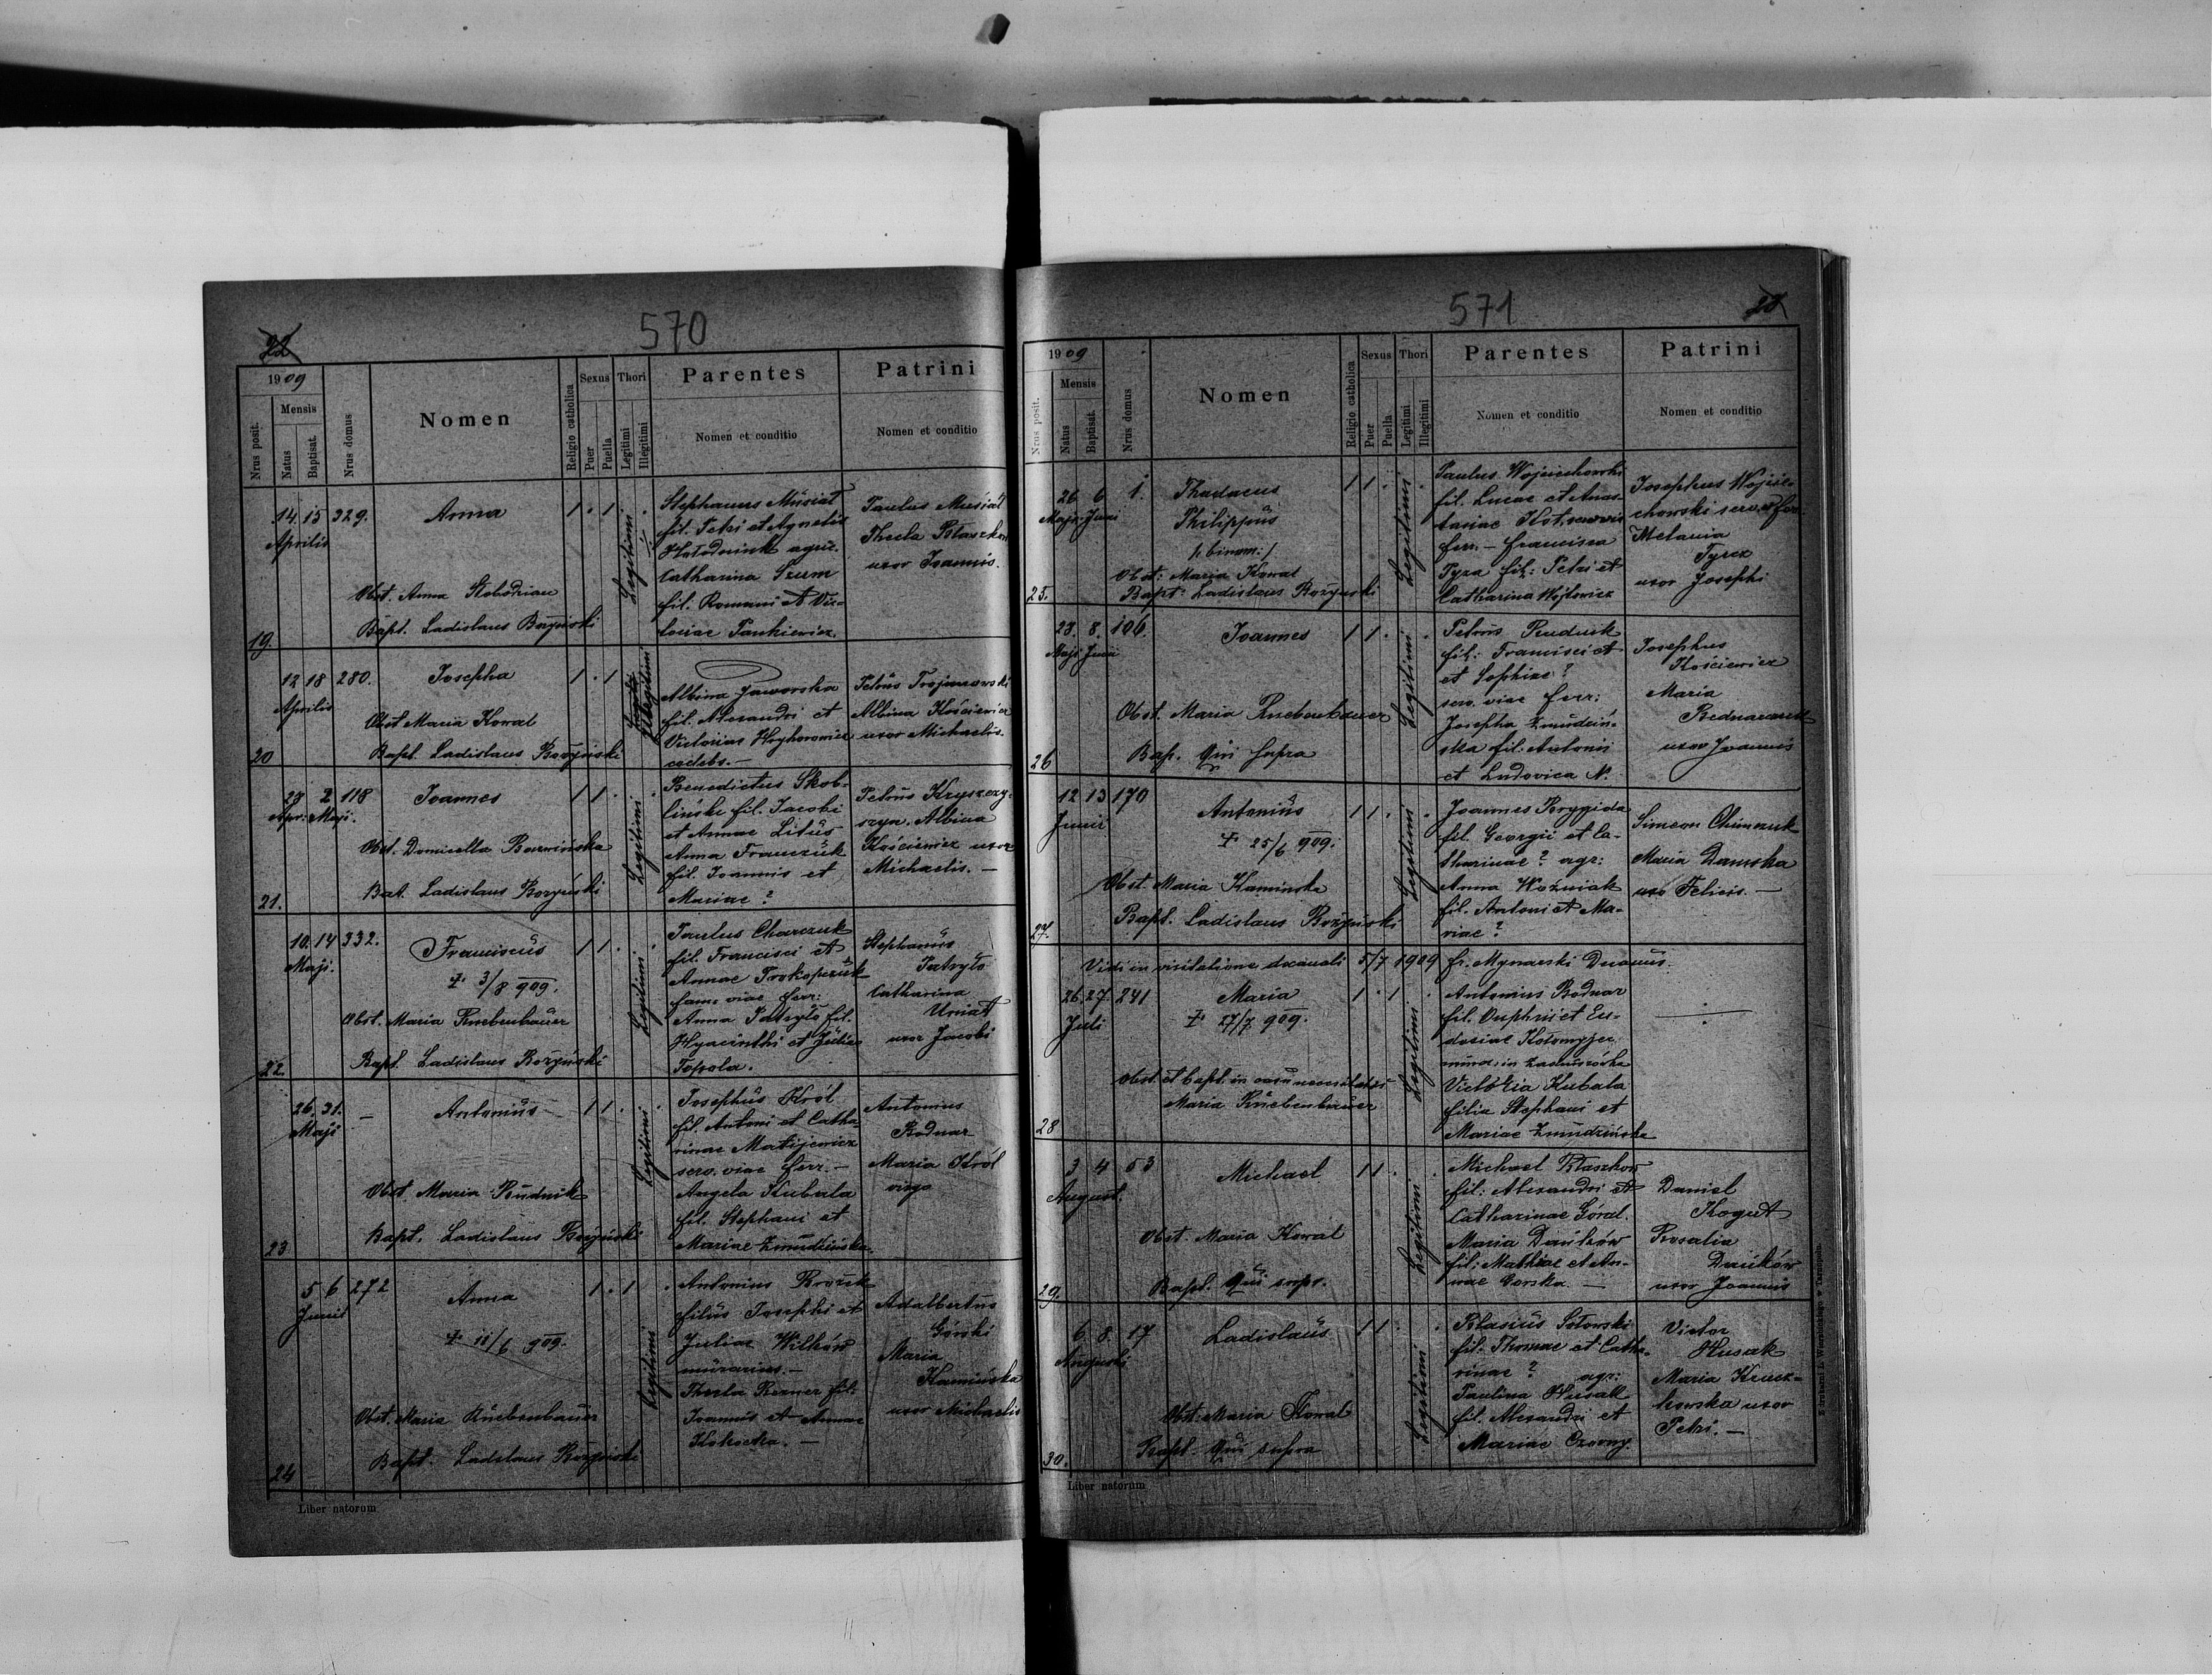 22
570
1909
Nrus posit.
Mensis
Natus
Baptisat.
Nrus domus
Nomen
Religio catholica
Sexus
Puer
Puella
Thori
Legitimi
Illegitimi
Parentes
Nomen et conditio
Patrini
Nomen et conditio
19.
14. 15 329.
Aprilis
Anna
Obst. Anna Skobodzian
Bapt. Ladislaus Bożyński
1 . 1 .
Legitimi
Stephanus Musiał
fil. Petri et Agnetis
Hołodniuk agric.
Catharina Szum
fil. Romani et Vic-
toriae Pankiewicz.
Paulus Musiał
Thecla Błaszków
uxor Joannis.
20
12 18 280.
Aprilis
Josepha
Obst. Maria Kowal
Bapt. Ladislaus Bożyński
1 . 1
Illegitimi
Albina Jaworska
fil. Alexandri et
Victoriae Hryhorowicz
caelebs. —
Petrus Trojanowski
Albina Kościewicz
uxor Michaelis.
21.
27 2 118
Apr. Maji.
Joannes
Obst. Domicella Barwińska
Bat. Ladislaus Bożyński
1 1 . .
Legitimi
Benedictus Skob-
liński fil. Jacobi
et Annae Litus
Anna Franczuk
fil. Joannis et
Mariae ?
Petrus Kryszczy-
szyn. Albina
Kościewicz uxor
Michaelis. —
22.
10. 14 332.
Maji.
Franciscus
‡ 3/8 909.
Obst. Maria Knebenbauer
Bapt. Ladislaus Bożyński
1 1 . .
Legitimi
Paulus Charczuk
fil. Francisci et
Annae Prokopczuk
fam. viae ferr:
Anna Patryło fil.
Hyacinthi et Juliae
Topola.
Stephanus
Patryło
Catharina
Uniat
uxor Jacobi
23
26. 31. —
Maji
Antonius
Obst. Maria Rudnik
Bapt. Ladislaus Bożyński
1 1 . .
Legitimi
Josephus Król
fil. Antoni et Catha-
rinae Matijewicz
serv. viae ferr. —
Angela Kubala
fil. Stephani et
Mariae Żmudzińska.
Antonius
Bodnar
Maria Król
virgo
24
5 6 272
Junii
Anna
‡ 11/6 909.
Obst. Maria Knebenbauer
Bapt. Ladislaus Bożyński
1 . 1 .
Legitimi
Antonius Brożek
filius Josephi et
Juliae Wilków
murarius. —
Thecla Rerner fil:
Joannis et Annae
Kokocka. —
Adalbertus
Górski
Maria
Kamińska
uxor Michaelis
Liber natorum
571
23
1909
Nrus posit.
Mensis
Natus
Baptisat.
Nrus domus
Nomen
Religio catholica
Sexus
Puer
Puella
Thori
Legitimi
Illegitimi
Parentes
Nomen et conditio
Patrini
Nomen et conditio
25.
26 6 1.
Maji Juni
Thadaeus
Philippus
/: binom: /
Obst: Maria Kowal
Bapt: Ladislaus Bożyński
1 1 . .
Legitimi
Paulus Wojciechowski
fil. Lucae et Anas-
tasiae Kot, servus
ferr. — Francisca
Pyza fil: Petri et
Catharina Wojtowicz
Josephus Wojcie-
chowski serv. v. ferr.
Melania
Tyrcz
uxor Josephi
26
23. 8. 106.
Maji Juni
Joannes
Obst. Maria Knebenbauer
Bap. Qui supra
1 1 . .
Legitimi
Petrus Rudnik
fil: Francisci et
et Sophiae ?
serv. viae ferr:
Josepha Żmudziń-
ska fil. Antonii
et Ludovica N.
Josephus
Kościewicz
Maria
Bednarczuk
uxor Joannis
27.
12 13 170
Junii
Antonius
‡ 25/6 909.
Obst. Maria Kaminska
Bapt. Ladislaus Bożyński
1 1 . .
Legitimi
Joannes Brygida
fil. Georgii et Ca-
tharinae ? agr:
Anna Woźniak
fil. Antoni et Ma-
riae ?
Simeon Chimczuk
Maria Damska
uxo Felicis. —
Vidi in visitatione decanali 5/7 1909 fr. Mynarski Decanus.
28
26. 27. 241
Juli
Maria
‡ 27/7 909.
Obst. et bapt. in casu necessitatis
Maria Knebenbauer
1 . 1 .
Legitimi
Antonius Bodnar
fil. Onuphrii et Eu-
dosiae Kołomyjec
murar. in Zadnieszówka
Victoria Kubala
filia Stephani et
Mariae Żmudzińska
29.
3 4 53
August.
Michael
Obst. Maria Kowal
Bapt. Qui supr.
1 1 . .
Legitimi
Michael Błaszków
fil: Alexandri et
Catharinae Góral.
Maria Dańków
fil: Mathiae et An-
nae Gorska. —
Daniel
Kogut
Rosalia
Dańków
uxor Joannis
30.
6. 8. 17
Augusti
Ladislaus
Obst: Maria Kowal
Bapt. Qui supra
1 1 . .
Legitimi
Blasius Sotowski
fil. Thomae et Catha-
rinae ? agr:
Paulina Husak
fil. Alexandri et
Mariae Czorny
Victor
Husak
Maria Krucz-
kowska uxor
Petri. —
Liber natorum
Z drukarni L. Wierzbickiego w Tarnopolu.